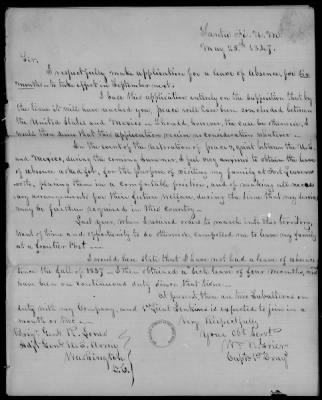 Santa Fe, N. M.
May 28th 1847.
Sir,
I respectfully make application for a leave of absence, for six
months – to take effect in September next.
I base this application entirely on the supposition that by
the time it will have reached you, peace will have been concluded between
the United States and Mexico – Should, however, the case be otherwise, I
would then desire that this application receive no consideration whatever –
In the event of the restoration of peace, between the U.S.
and Mexico, during the coming summer, I feel very anxious to obtain the leave
of absence asked for, for the purpose of visiting my family at Fort Leaven-
worth, placing them in a comfortable position, and of making all neces-
sary arrangements for their future welfare, during the time that my services
may be further required in this Country –
Last year, when I received orders to march into this territory,
want of time and opportunity to do otherwise, compelled me to leave my family
at a frontier Post –
I would here state that I have not had a leave of absence
since the fall of 1837 – I then obtained a sick leave of four months, and
have been on continuous duty since that time –
At present, there are two Subalterns on
duty with my Company, and 1st Lieut. Jenkins is expected to join in a
month or two –
Very Respectfully
Your Obt Servt
Brig. Genl. R. Jones
Wm. N. Grier
Adjt. Genl. U.S. Army
Capt. 1st Drags
Washington
D.C.